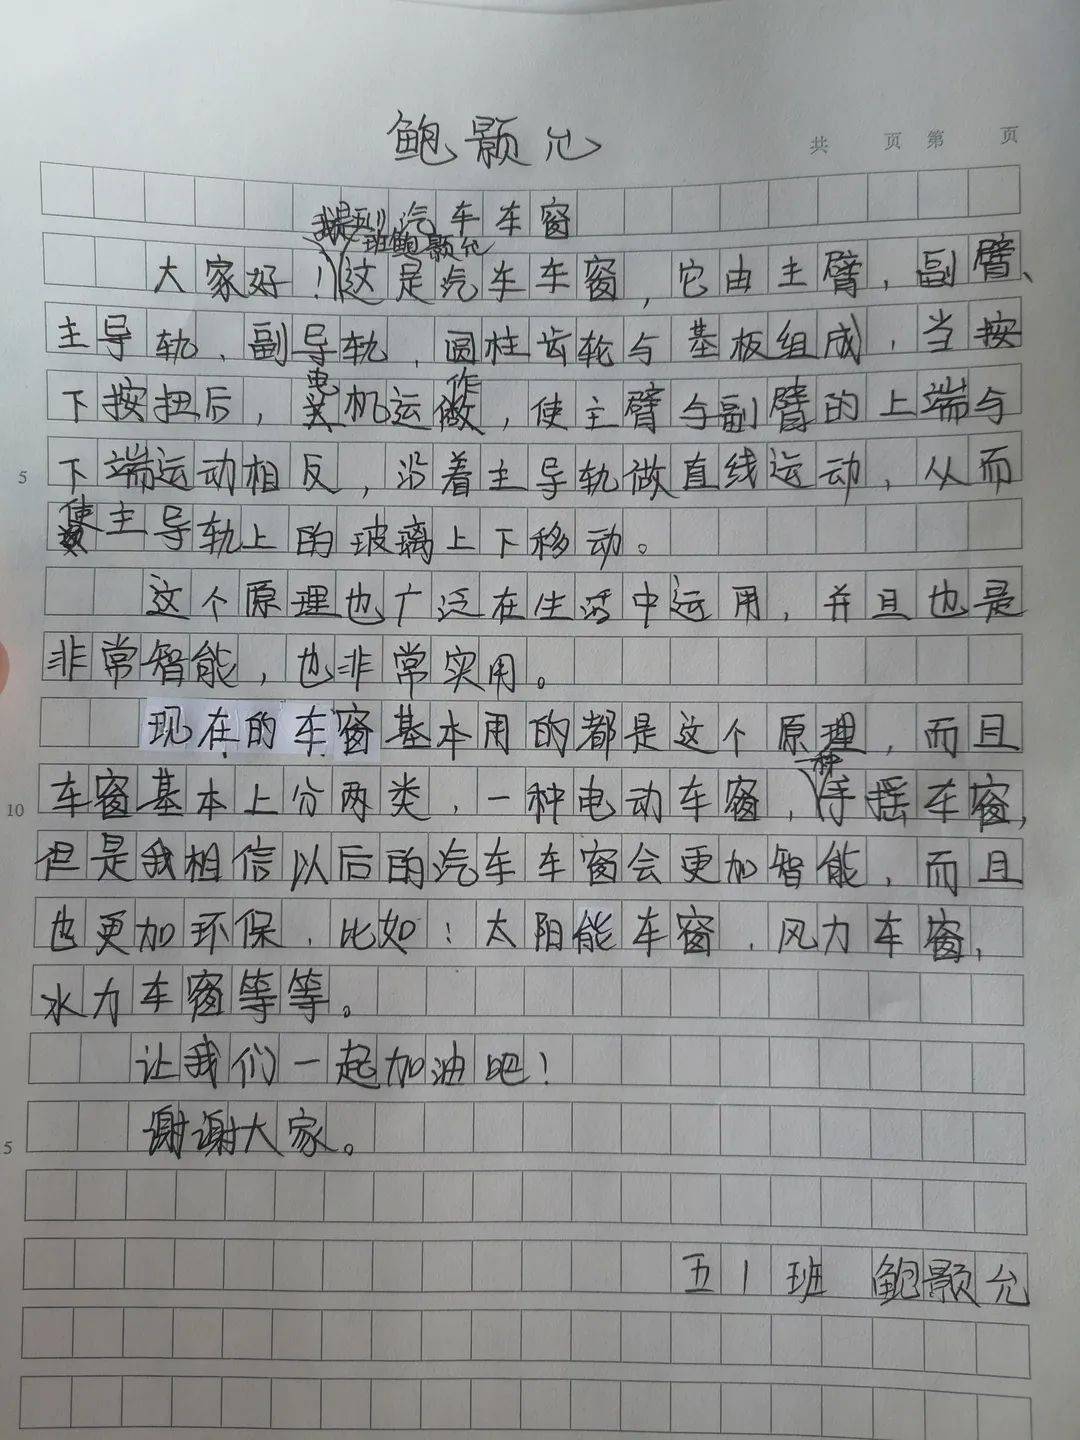 鲍颢允
共 页 第 页
汽车车窗
我是五1
班鲍颢允
大家好！这是汽车车窗，它由主臂，副臂、
主导轨、副导轨，圆柱齿轮与基板组成，当按
下按扭后，电机运作，使主臂与副臂的上端与
5 下端运动相反，沿着主导轨做直线运动，从而
使主导轨上的玻璃上下移动。
这个原理也广泛在生活中运用，并且也是
非常智能，也非常实用。
现在的车窗基本用的都是这个原理，而且
10 车窗基本上分两类，一种电动车窗，一种手摇车窗，
但是我相信以后的汽车车窗会更加智能，而且
也更加环保，比如：太阳能车窗，风力车窗，
水力车窗等等。
让我们一起加油吧！
5 谢谢大家。
五1班 鲍颢允